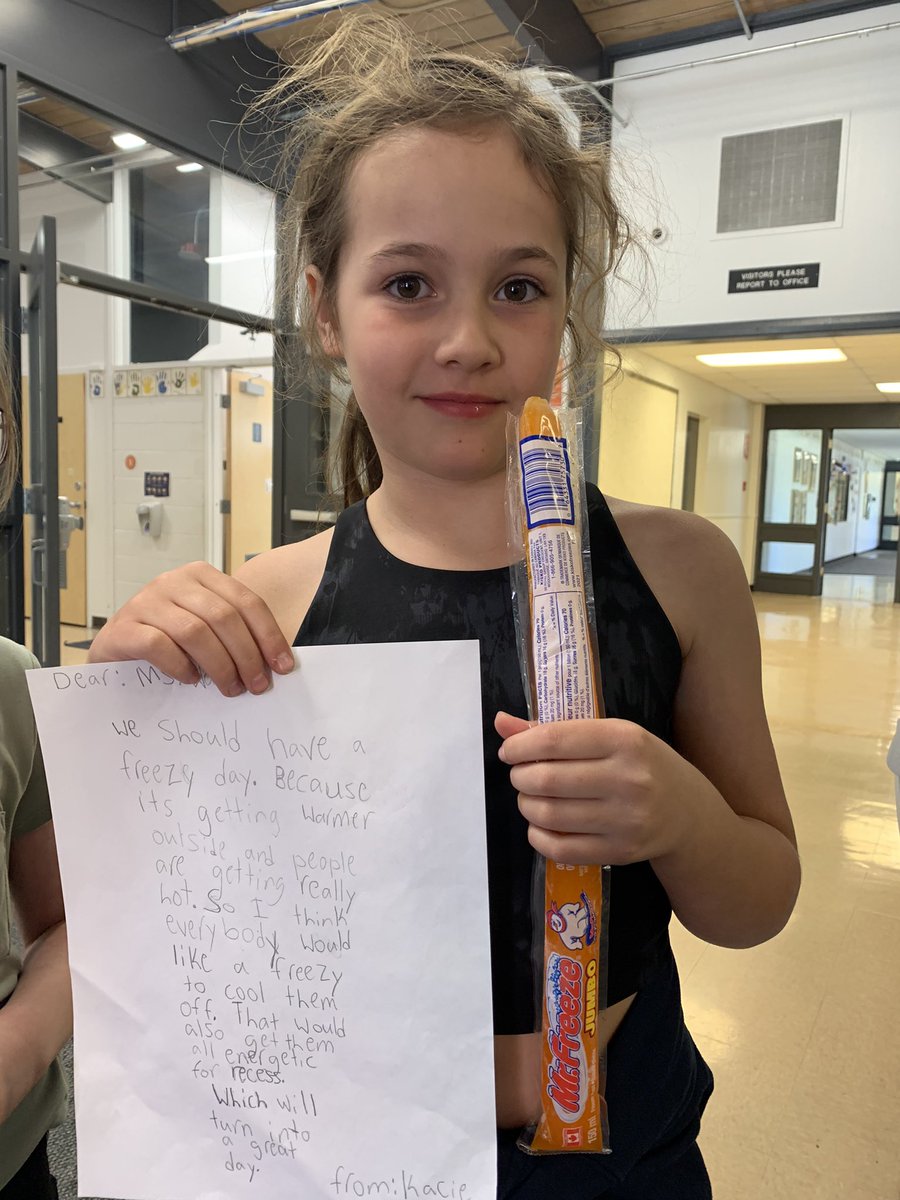 VISITORS PLEASE
REPORT TO OFFICE
Dear: Ms.
we should have a
freezy day. Because
its getting warmer
outside and people
are getting really
hot. So I think
everybody would
like a freezy
to cool them
off. That would
also get them
all energetic
for recess.
Which will
turn into
a great
day.
from: Kacie
1-866-905-4756
Calories 70
Mr. Freeze
JUMBO
150 ml